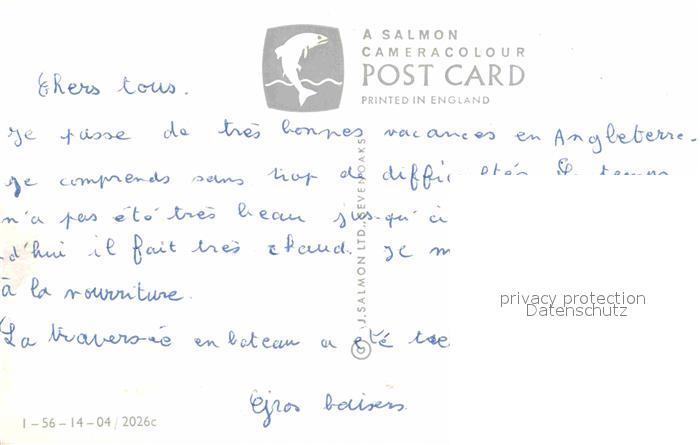 A SALMON
CAMERACOLOUR
POST CARD
PRINTED IN ENGLAND
Chers tous.
Je passe de très bonnes vacances en Angleterre.
Je comprends sans trop de diffic ultés Le temps
n'a pas été très beau jusqu'à
d'hui il fait très chaud. Je m
à la nourriture.
La traversée en bateau a été
Gros baisers
© J. SALMON LTD., SEVENOAKS
1-56-14-04/2026c
privacy protection
Datenschutz